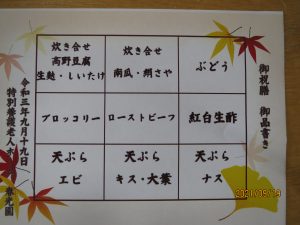 御祝膳　御品書き
ぶどう
紅白生酢
天ぷら
ナス
炊き合せ
南瓜・絹さや
ローストビーフ
天ぷら
キス・大葉
炊き合せ
高野豆腐
生麩・しいたけ
ブロッコリー
天ぷら
エビ
令和三年九月十九日
特別養護老人ホーム
2021/09/19